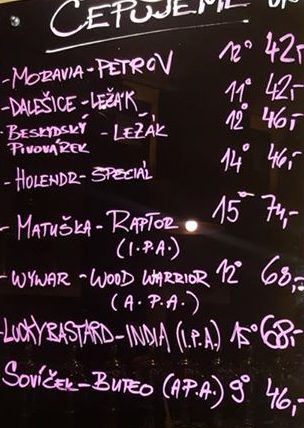 ČEPUJEME
- MORAVIA - PETROV 12° 42,-
- DALEŠICE - LEŽÁK 11° 42,-
- BESKYDSKÝ PIVOVÁREK - LEŽÁK 12° 46,-
- HOLENDR - SPECIÁL 14° 46,-
- MATUŠKA - RAPTOR 15° 74,-
(I.P.A.)
- WYWAR - WOOD WARRIOR 12° 68,-
(A.P.A.)
- LUCKY BASTARD - INDIA (I.P.A.) 15° 68,-
SOVÍČEK - BUTEO (A.P.A.) 9° 46,-